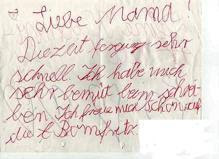 Liebe Mama!
Diezeit ferging sehr
schnell Ich habe mich
sehr bemüt beim schrei-
ben. Ich freue mich schon auf
die